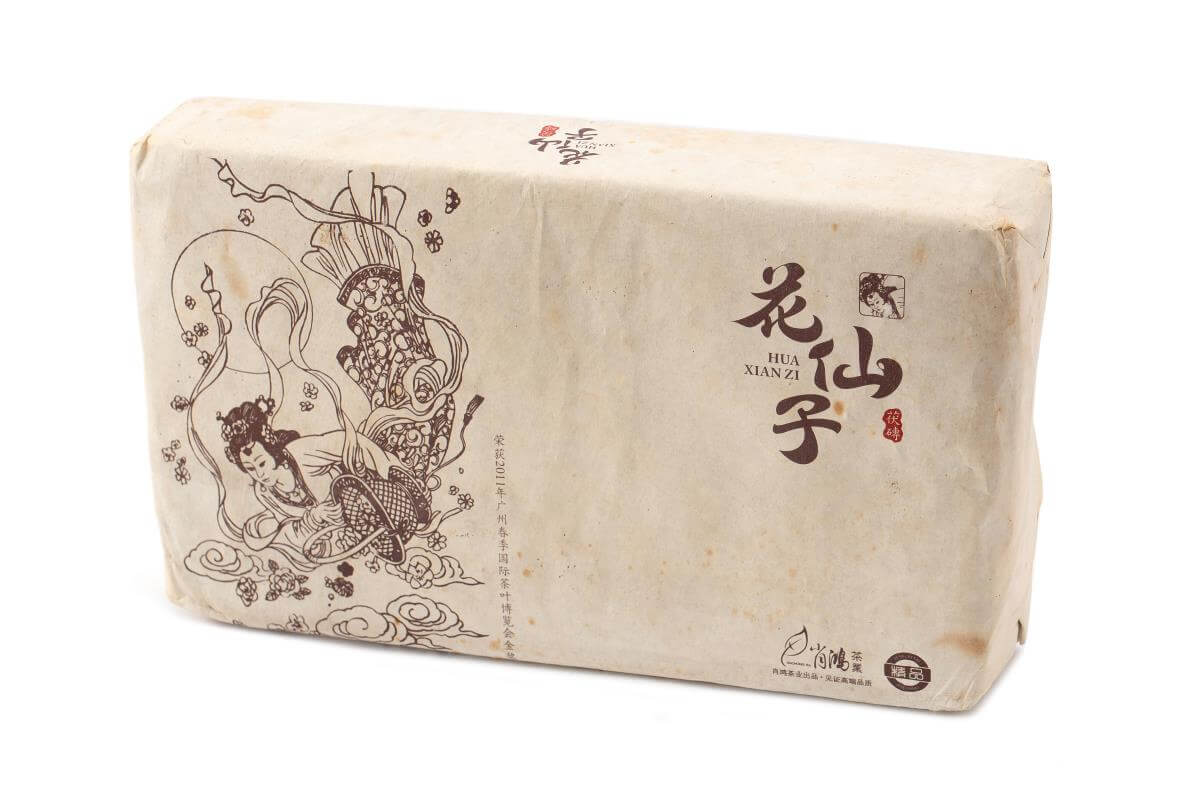 花仙子
HUA
XIAN ZI
花仙子
HUA
XIAN ZI
茯磚
荣获2011年广州春季国际茶叶博览会金奖
肖鴻
茶業
肖鸿茶业出品·见证高端品质
精品